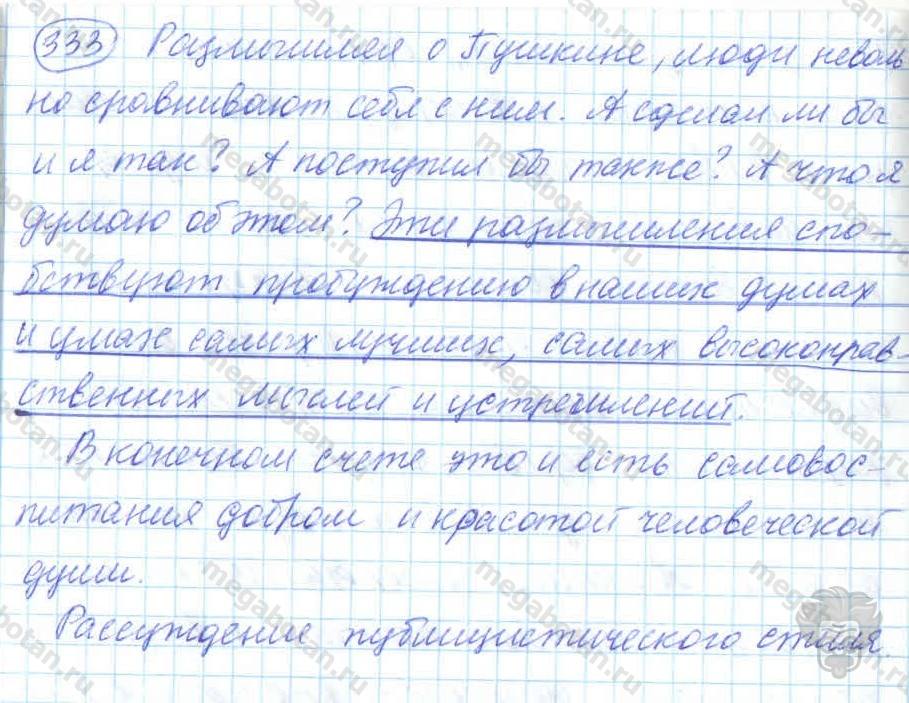 333 Размышляя о Пушкине, люди неволь
но сравнивают себя с ним. А сделал ли бы
и я так? А поступил бы также? А что я
думаю об этом? Эти размышления спо-
бствуют пробуждению в наших душах
и умах самых лучших, самых высоконрав-
ственных мыслей и устремлений.
В конечном счете это и есть самовос-
питания добром и красотой человеческой
души.
Рассуждение публицистического стиля.
megabotan.ru